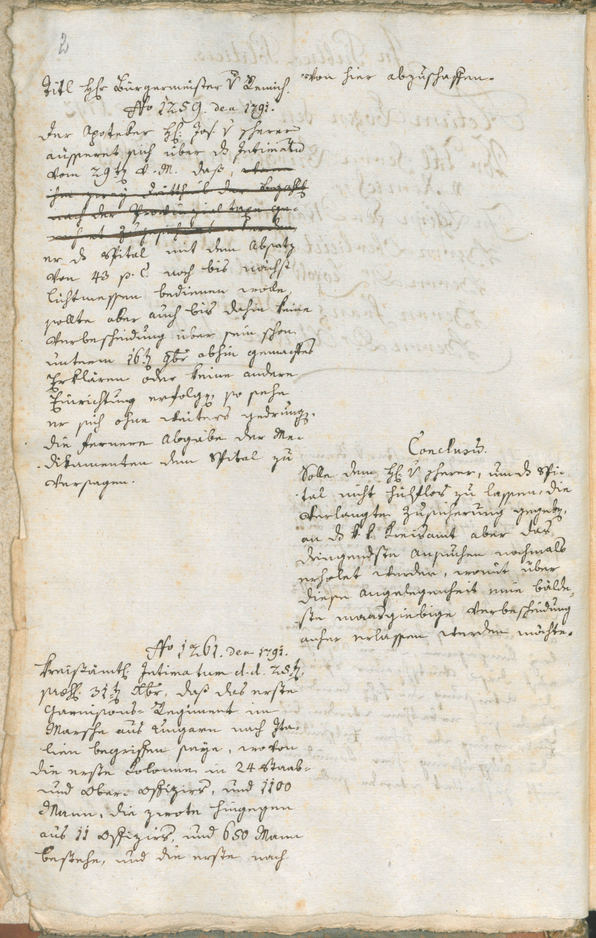 2
Titl Hr Bürgermeister v Remich
von hier abzuschaffen.
No 1259. den 1791.
Der Apoteker H: Jos: v pherer
äusseret sich über ds Intimatū
vom 29t v. M. daß,
er ds Spital mit dem Absatz
von 43 p. C. noch bis nächst
lichtmessen bedienen wolle,
sollte aber auch bis dahin keine
Verbescheidung über sein schon
unterm 16t 9br abhin gemachtes
Erklären oder keine andere
Einrichtung erfolgen, so sehe
er sich ohne weiters gedrung.
die fernere Abgabe der Me-
dikamenten dem Spital zu
versagen.
Conclusum.
Solle dem H: v pherer, um ds Spi-
tal nicht hilflos zu lassen, die
verlangte Zusicherung gegeben,
an ds k k Kreisamt aber das
dringendste Ansuchen nochmals
erholet werden, womit über
diese Angelegenheit eine bälde-
ste maasgiebige Verbescheidung
anher erlassen werden möchte.
No 1261. den 1791.
Kreisämtl Intimatum d. d. 25t
31t Xbr, daß das erste
Garnisons-Regiment im
Marsche aus Ungarn nach Ita-
lien begriffen seye, wovon
die erste Colonne in 24 Staab-
und Ober-Offiziers, und 1100
Mann, die zwote hingegen
aus 11 Offiziers, und 650 Mann
bestehe, und die erste nach